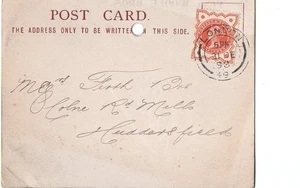 POST CARD.
THE ADDRESS ONLY TO BE WRITTEN ON THIS SIDE.
LONDON
98
49
Messrs Firth Bros
Colne Rd Mills
Huddersfield